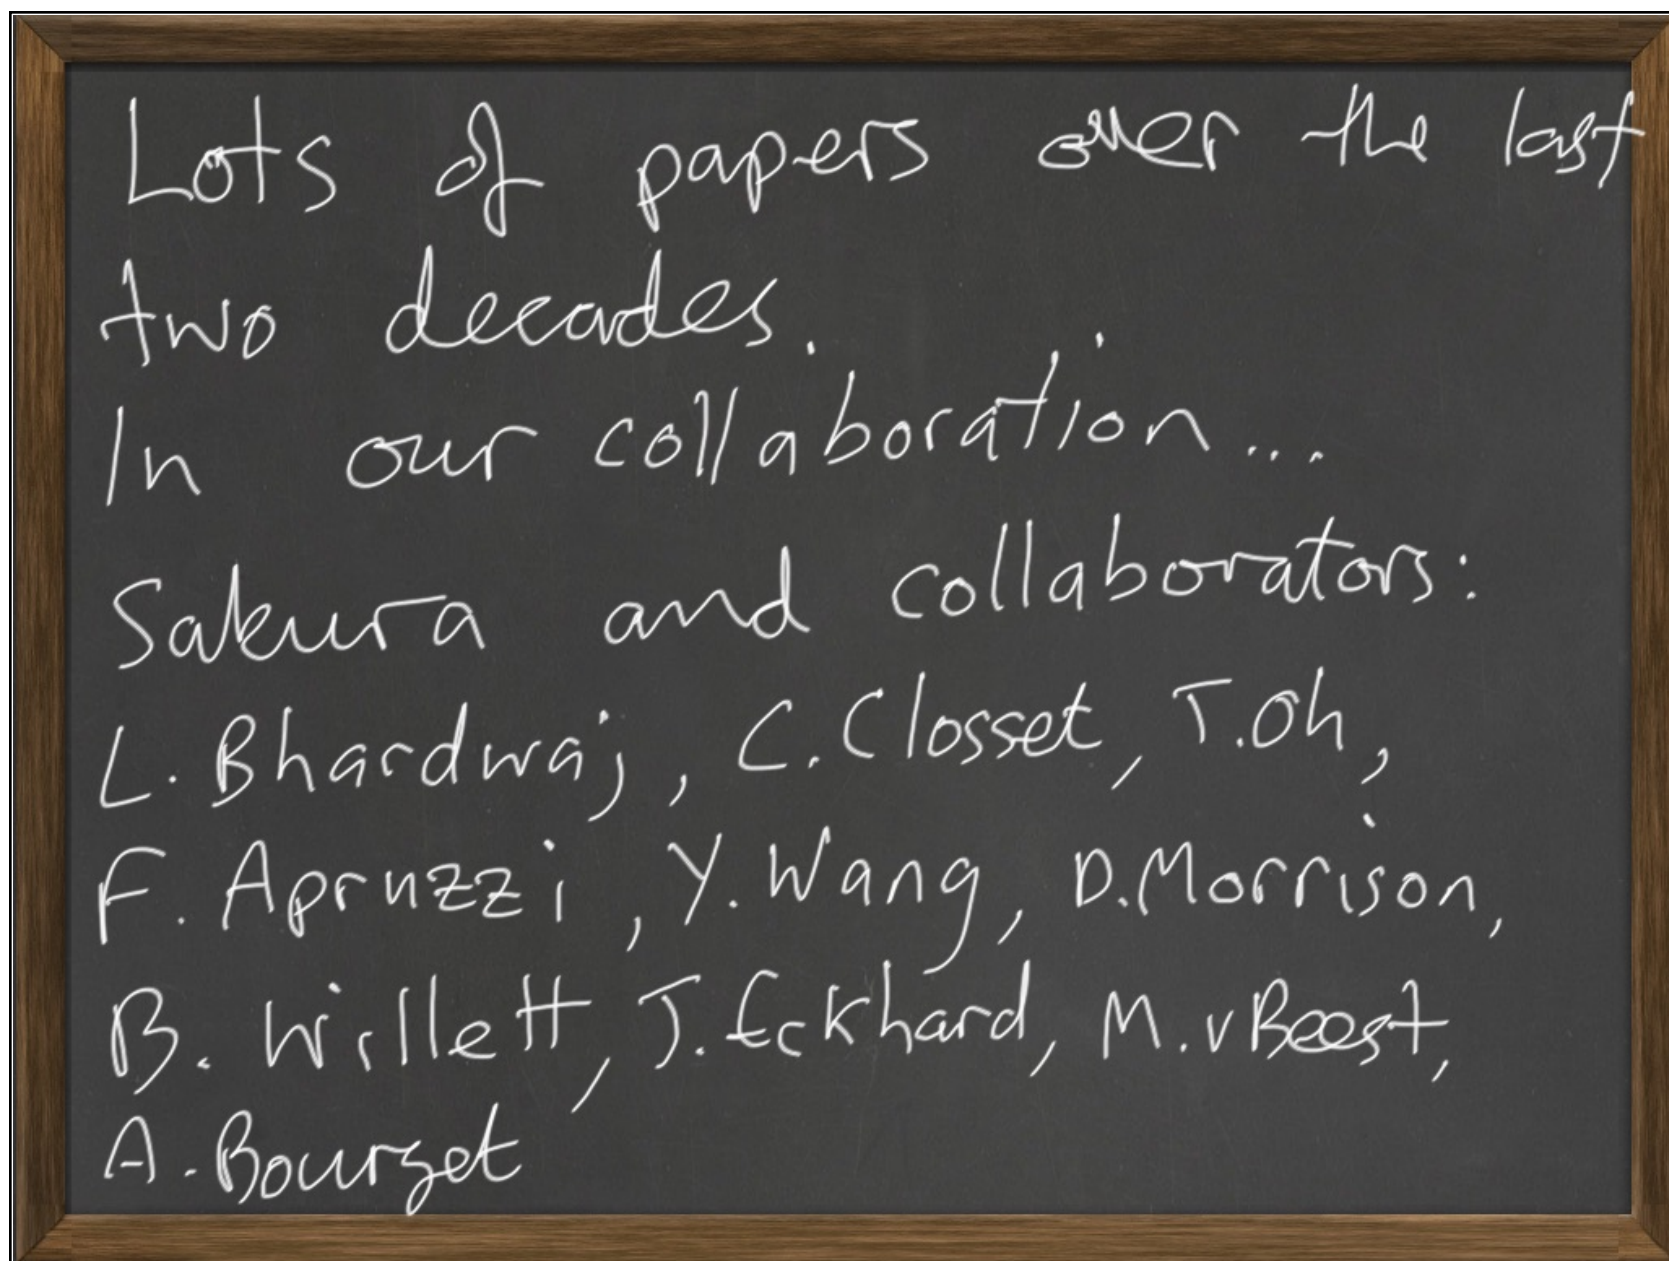 Lots of papers over the last
two decades.
In our collaboration...
Sakura and collaborators:
L. Bhardwaj, C. Closset, T. Oh,
F. Apruzzi, Y. Wang, D. Morrison,
B. Willett, J. Eckhard, M. v Beest,
A. Bourget